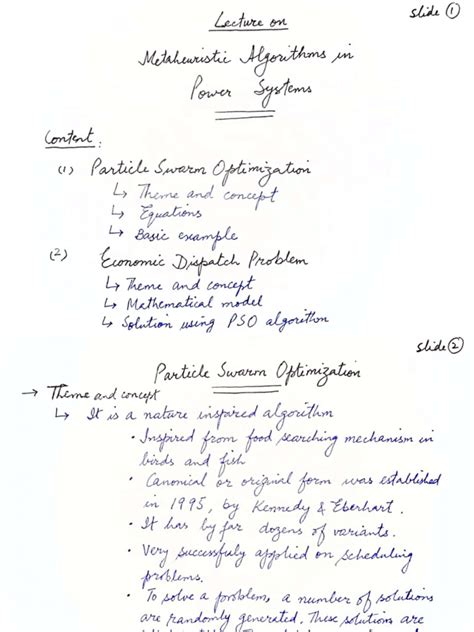 Slide ①
Lecture on
Metaheuristic Algorithms in
Power Systems
Content:
(1) Particle Swarm Optimization
↳ Theme and concept
↳ Equations
↳ Basic example
(2) Economic Dispatch Problem
↳ Theme and concept
↳ Mathematical model
↳ Solution using PSO algorithm
Slide ②
Particle Swarm Optimization
→ Theme and concept
↳ It is a nature inspired algorithm
• Inspired from food searching mechanism in
birds and fish
• Canonical or original form was established
in 1995, by Kennedy & Eberhart.
• It has by far dozens of variants.
• Very successfuly applied on scheduling
problems.
• To solve a problem, a number of solutions
are randomly generated. These solutions are